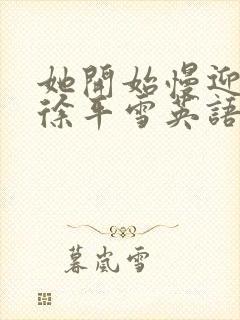 她開始慢迎
徐平雪英語
暮嵐雪